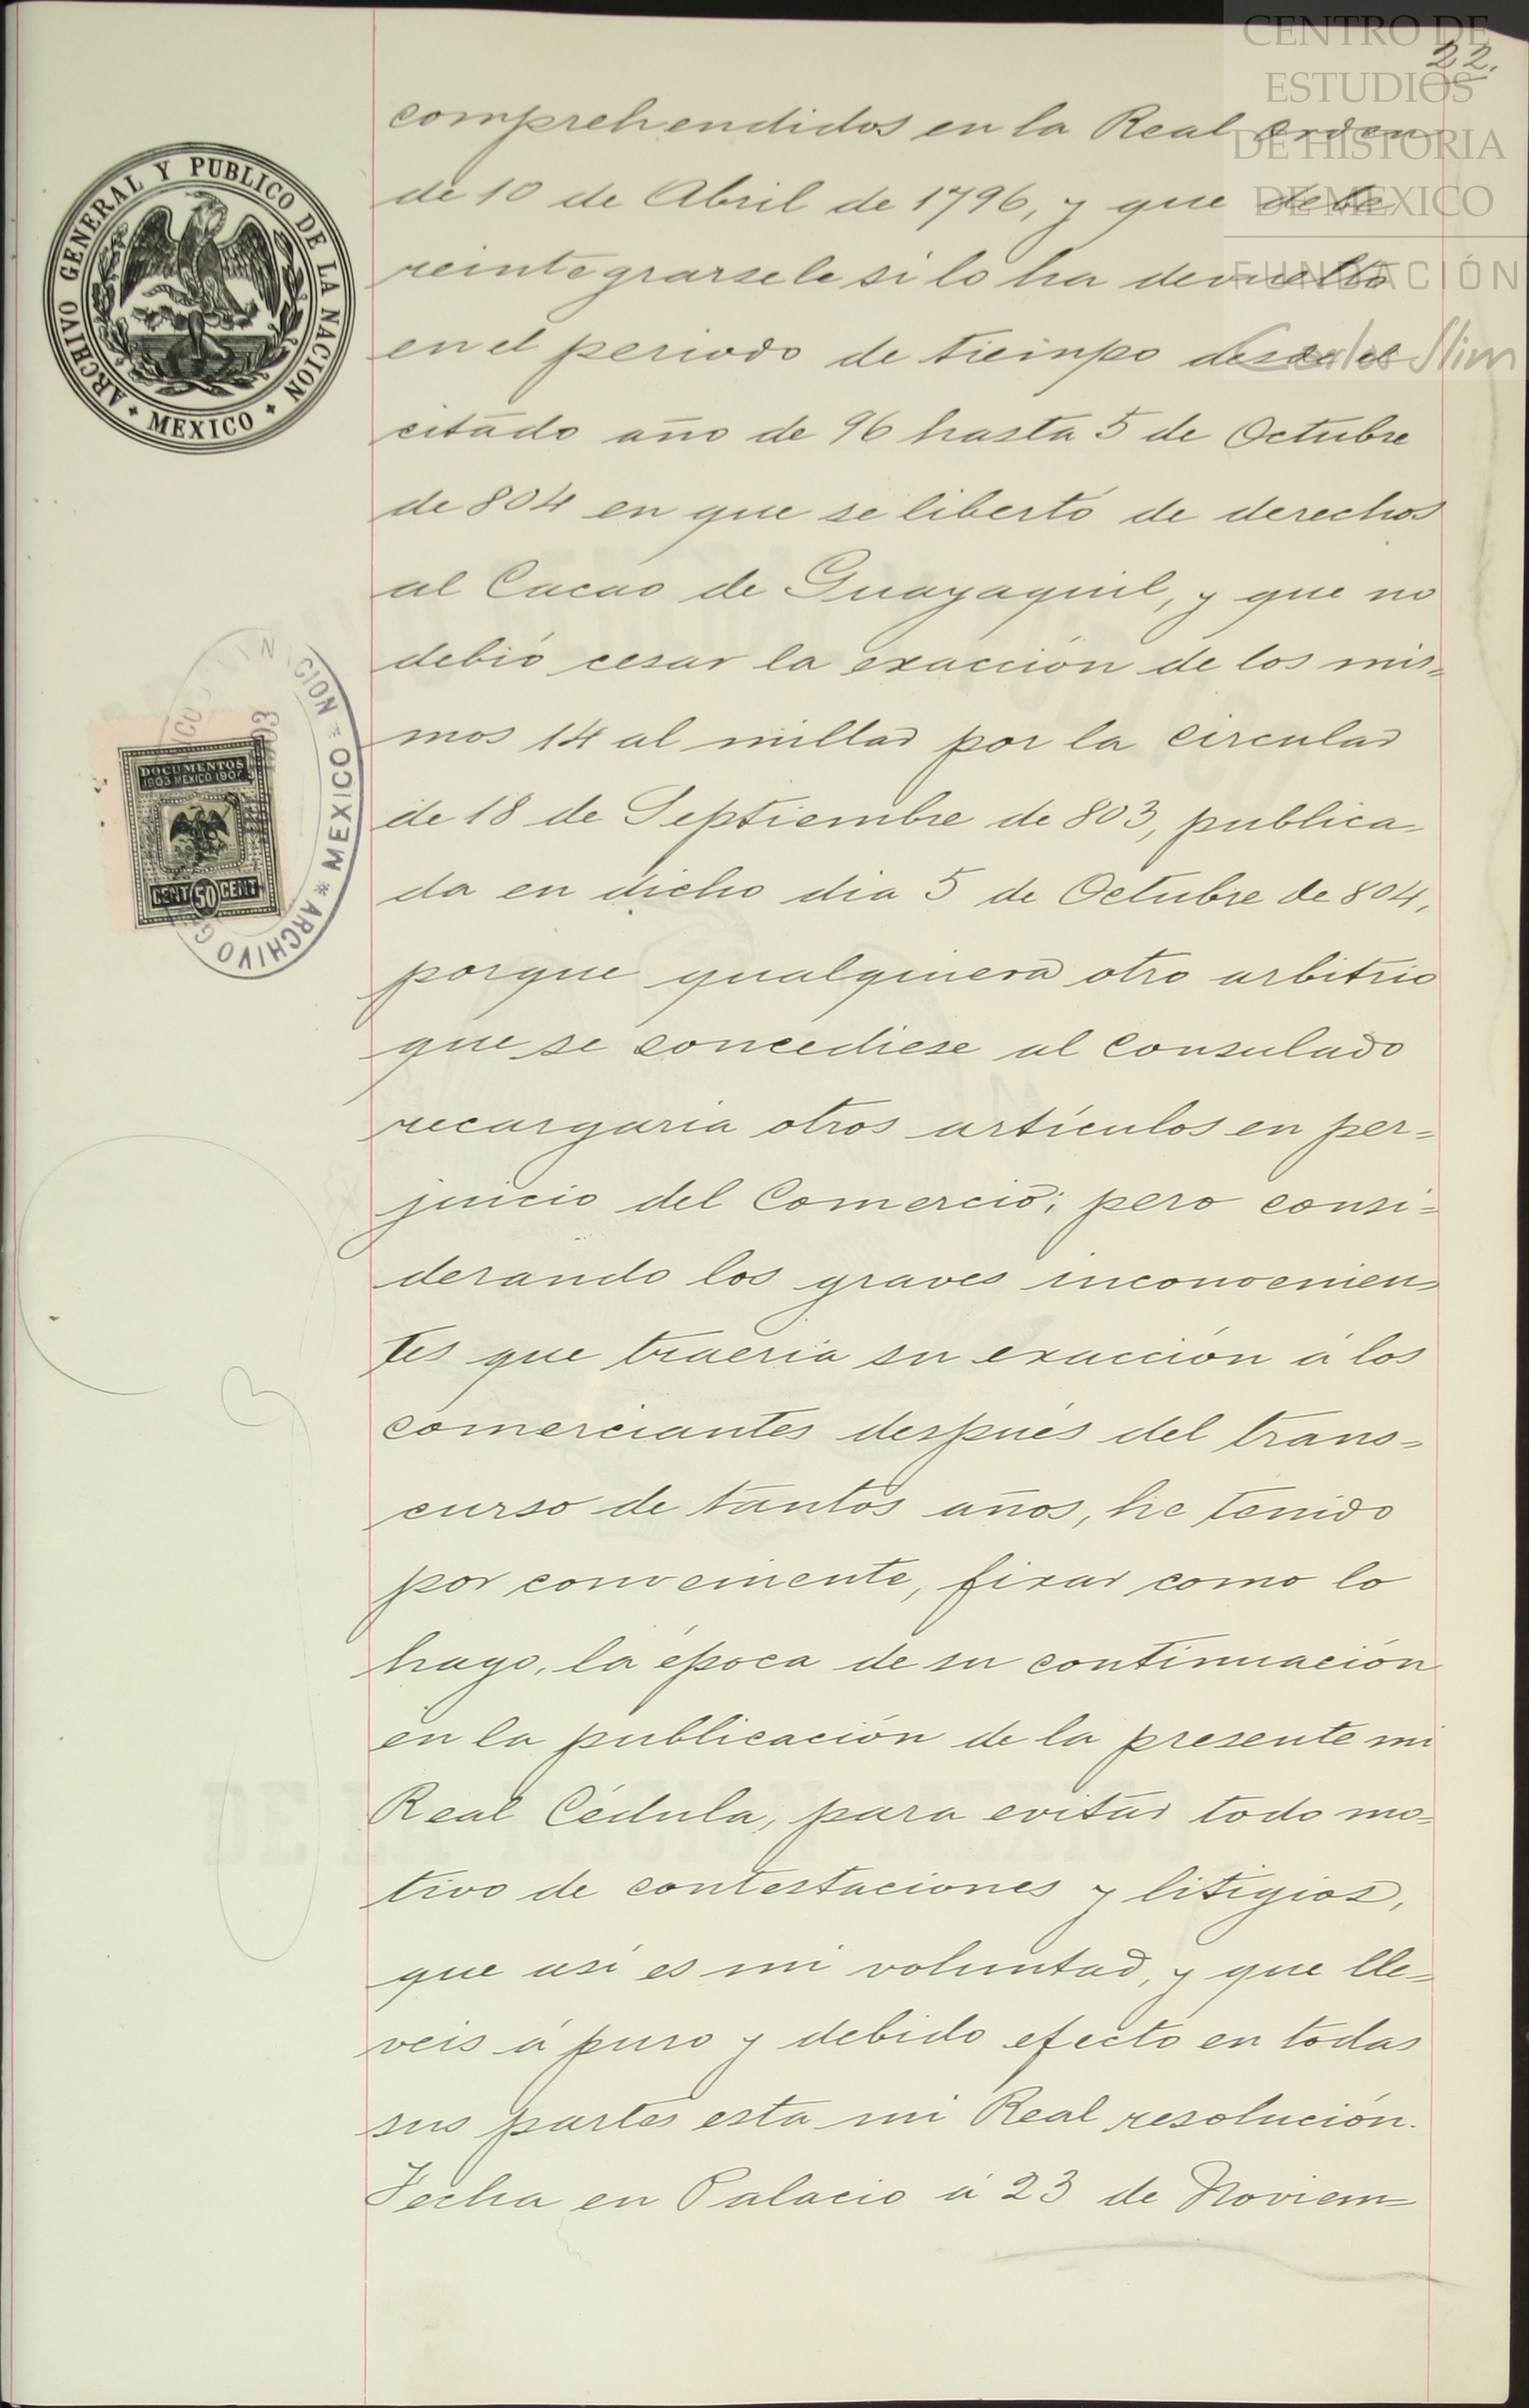 CENTRO DE
ESTUDIOS
DE HISTORIA
DE MEXICO
FUNDACIÓN
Carlos Slim
22.
comprehendidos en la Real orden
de 10 de Abril de 1796, y que debe
reintegrarsele si lo ha devuelto
en el periodo de tiempo desde el
citado año de 96 hasta 5 de Octubre
de 804 en que se libertó de derechos
al Cacao de Guayaquil, y que no
debió cesar la exacción de los mis=
mos 14 al millar por la circular
de 18 de Septiembre de 803, publica=
da en dicho dia 5 de Octubre de 804,
porque qualquiera otro arbitrio
que se concediese al consulado
recargaria otros artículos en per=
juicio del Comercio; pero consi=
derando los graves inconvenien=
tes que traeria su exacción á los
comerciantes después del trans=
curso de tantos años, he tenido
por conveniente, fixar como lo
hago, la época de su continuación
en la publicación de la presente mi
Real Cédula, para evitar todo mo=
tivo de contestaciones y litigios,
que así es mi voluntad, y que lle=
veis á puro y debido efecto en todas
sus partes esta mi Real resolución.
Fecha en Palacio á 23 de Noviem=
ARCHIVO GENERAL Y PUBLICO DE LA NACION
MEXICO
DOCUMENTOS
1903 MEXICO 1904
CENT 50 CENT
CION * MEXICO * ARCHIVO G